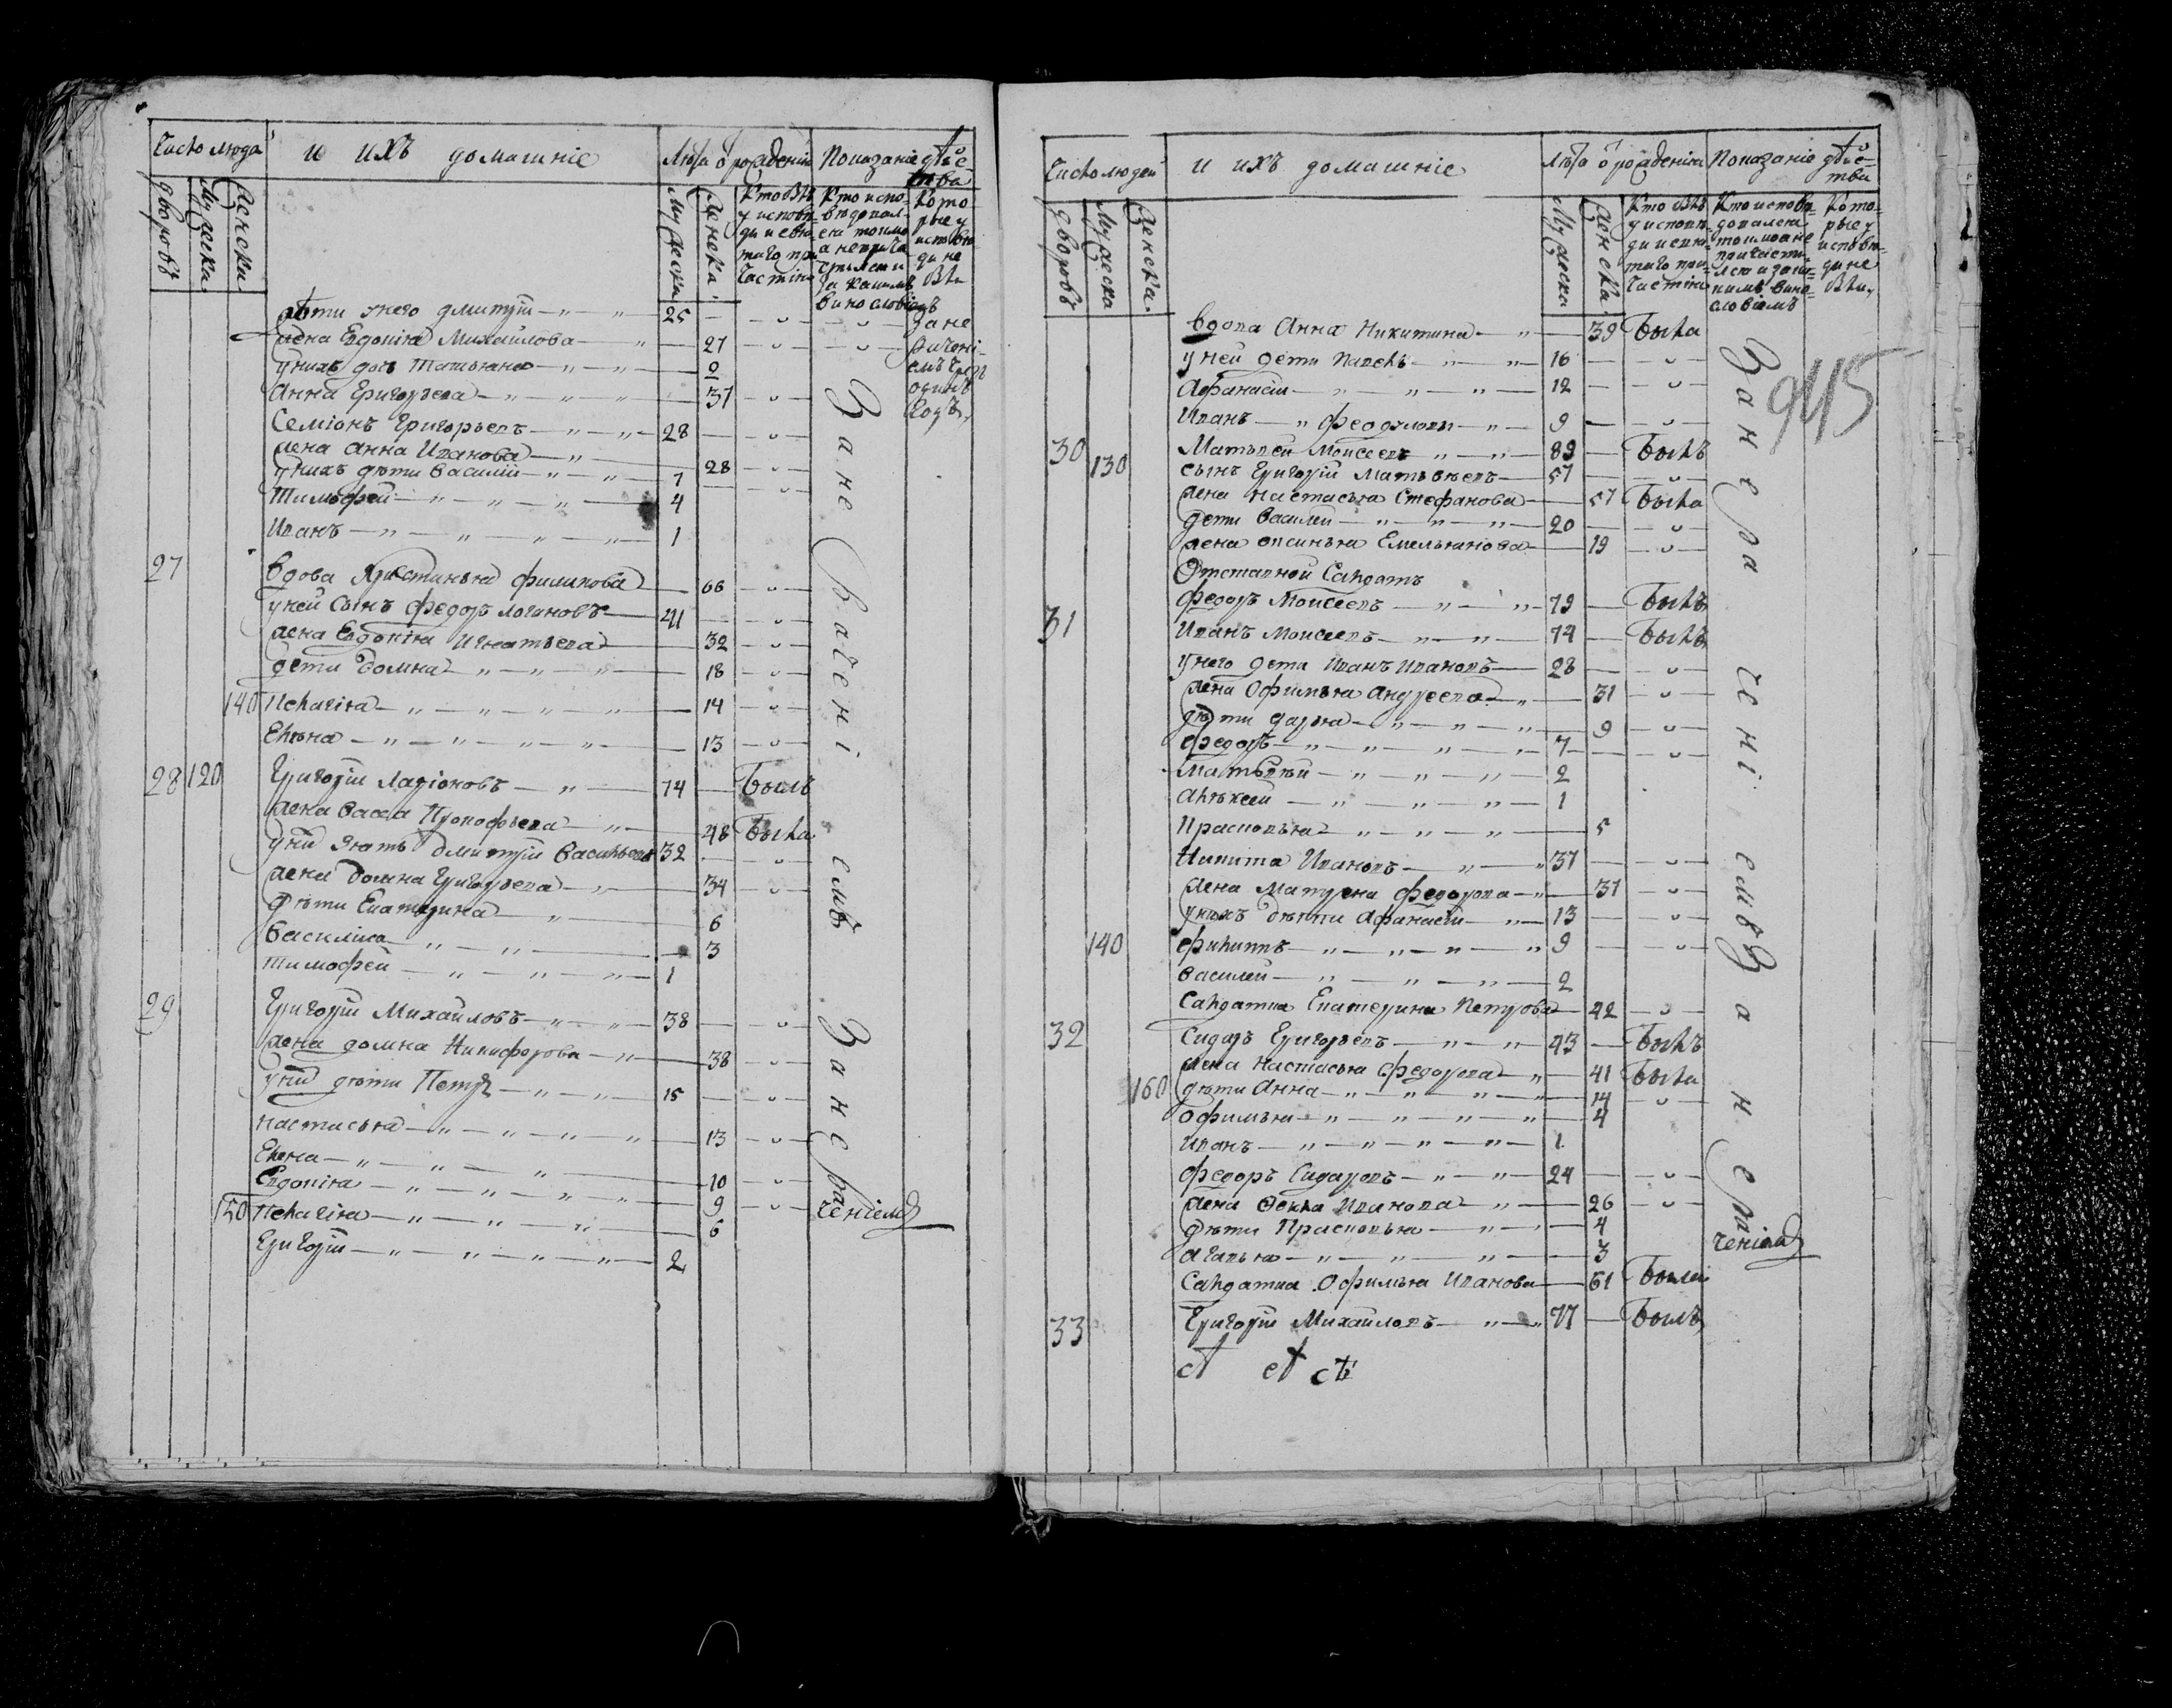 Число люде и ихъ домашніе Лѣта ѿ рожденія Показаніе дѣйства
дворовъ Мужеска Женска Мужеска Женска Кто былъ у исповѣди и святаго причастія Кто исповѣдовался токмо а не причастился и за какимъ винословіемъ Которые у исповѣди не были
дѣти у него Дмитрій 25
жена Евдокія Михайлова 27
у нихъ дочь Татьяна 0
Анна Григорьева 37
Семіонъ Григорьевъ 28
жена Анна Иванова 28
у нихъ дѣти Василій 7
Тимофей 4
Иванъ 1
27 вдова Христинья Филипова 66
у ней сынъ Федоръ Логиновъ 41
жена Евдокія Игнатьева 32
дети Домна 18
140 Пелагія 14
Елѣна 13
28 120 Григорій Ларіоновъ 74 Былъ
жена Васса Прокофьева 48 Была
у ни зять Дмитрій Васильевъ 32
жена Домна Григорьева 34
дѣти Екатерина 6
Василиса 3
Тимофей 1
29 Григорій Михайловъ 38
жена Домна Никифорова 38
у ни дѣти Петръ 15
Настасья 13
Елена 10
Евдокія 9
150 Пелагія 6
Григорій 2
За не рачені емъ
За не ра ченіемъ
Число людей и ихъ домашніе Лѣта ѿ рожденія Показаніе дѣйства
дворовъ Мужеска Женска Мужеска Женска Кто былъ у исповѣди и святаго причастія Кто исповѣдовался токмо а не причастился и за какимъ винословіемъ Которые у исповѣди не были
945
вдова Анна Никитина 39 Была
у ней дети Павелъ 16
Афанасій 12
Иванъ Феодуловы 9
30 130 Матьвей Моисеевъ 89 Былъ
сынъ Григорій Матьвѣевъ 57
жена Настасья Стефанова 57 Была
дети Василей 20
жена Аксинья Емельянова 19
Отставной Салдатъ
Федоръ Моисеевъ 79 Былъ
31 Иванъ Моисеевъ 74 Былъ
у него дети Иванъ Ивановъ 28
жена Офимья Андреева 31
дѣти Дарья 9
Федоръ 7
Матьвѣй 2
Алѣксей 1
Прасковья 5
Никита Ивановъ 37
жена Матрена Федорова 37
у нихъ дѣти Афанасій 13
140 Филиппъ 9
Василей 2
Салдатка Екатерина Петрова 42
32 Сидаръ Григорьевъ 43 Былъ
жена Настасья Федорова 41 Была
160 дѣти Анна 14
Офимья 4
Иванъ 1
Федоръ Сидаровъ 24
жена Фекла Иванова 26
дѣти Прасковья 4
Агафья 3
Салдатка Офимья Иванова 61 Была
33 Григорій Михайловъ 77 Былъ
За не ра чені емъ За н е ра ченіемъ